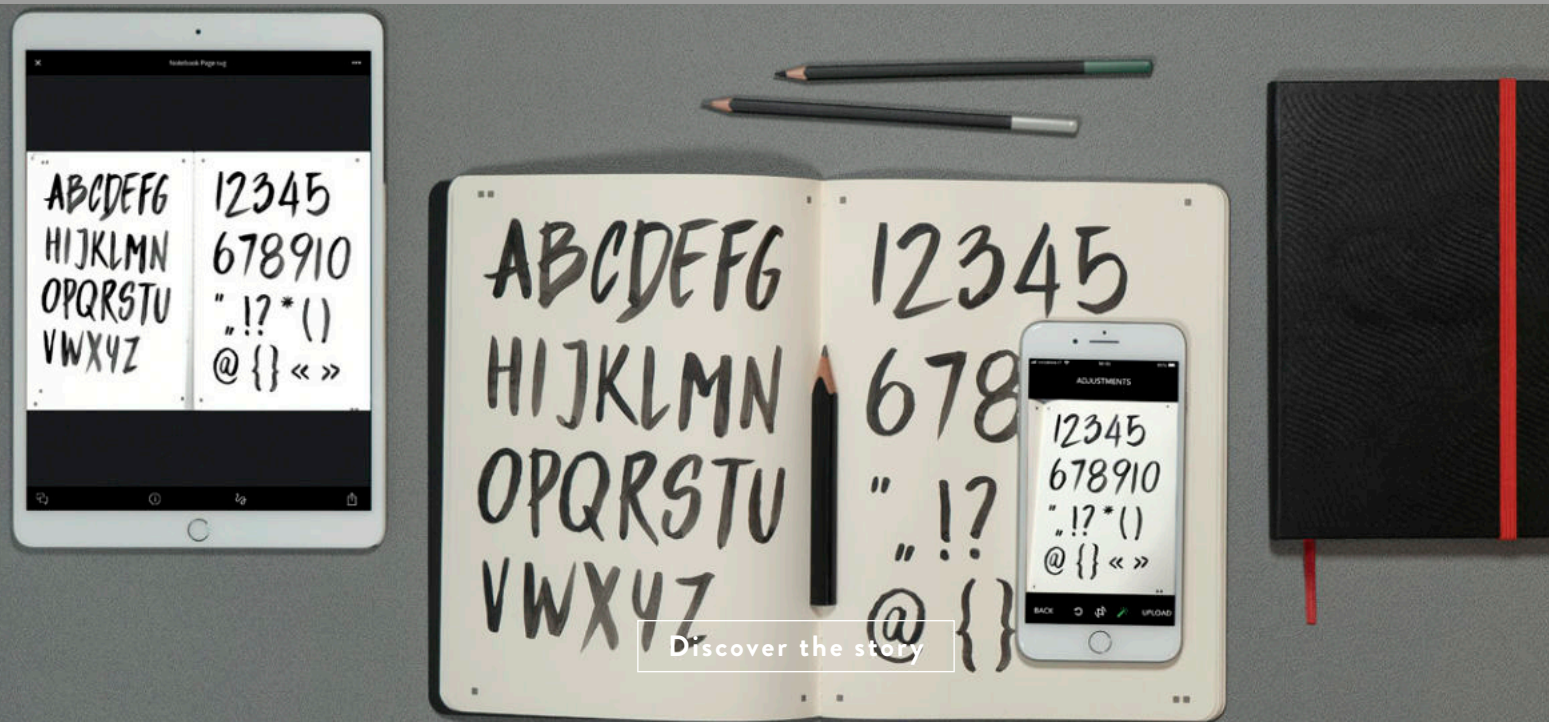 Notebook Page.svg
ABCDEFG
HIJKLMN
OPQRSTU
VWXYZ
12345
678910
" „ !? * ( )
@ { } « »
ABCDEFG
HIJKLMN
OPQRSTU
VWXYZ
12345
678
" „ !?
@ { }
ADJUSTMENTS
12345
678910
" „ !? * ( )
@ { } « »
BACK
UPLOAD
Discover the story